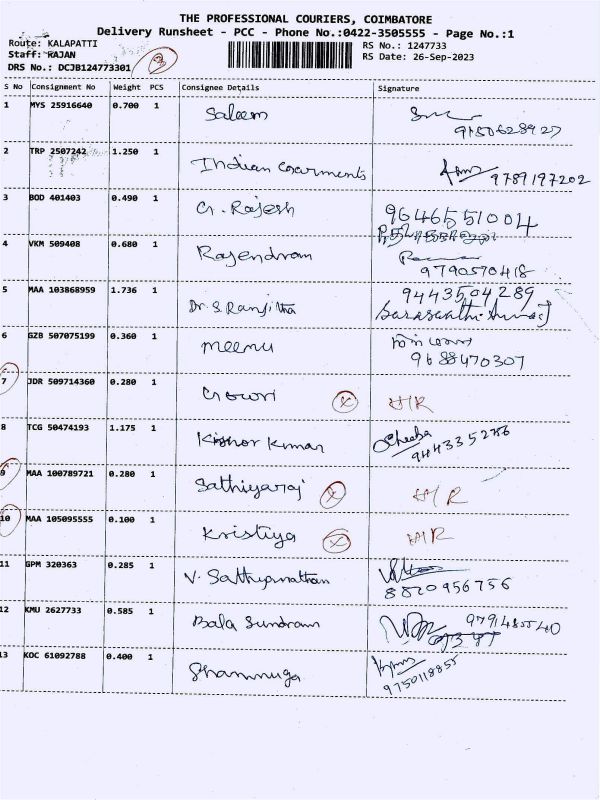 THE PROFESSIONAL COURIERS, COIMBATORE
Delivery Runsheet - PCC - Phone No.:0422-3505555 - Page No.:1
Route: KALAPATTI
Staff: RAJAN
DRS No.: DCJB124773301
3
RS No.: 1247733
RS Date: 26-Sep-2023
S No Consignment No Weight PCS Consignee Details Signature
1 MYS 25916640 0.700 1 Saleem
9150628927
2 TRP 2507242 1.250 1 Indian Garments 9789197202
3 BOD 401403 0.490 1 G. Rajesh 9646551004
4 VKM 509408 0.680 1 Rajendran
9790570418
5 MAA 103868959 1.736 1 Dr. S. Ranjitha 9443504289
6 GZB 507075199 0.360 1 Meenu
9688470307
7 JDR 509714360 0.280 1 Gowri X H/R
8 TCG 50474193 1.175 1 Kishor Kumar Sheeba
9443352756
9 MAA 100789721 0.280 1 Sathiyaraj X H/R
10 MAA 105095555 0.100 1 Kristiya X H/R
11 GPM 320363 0.285 1 V. Sathyanathan
8820956756
12 KMU 2627733 0.585 1 Bala Sundram 9791485540
13 KOC 61092788 0.400 1 Shanmuga
9750118855